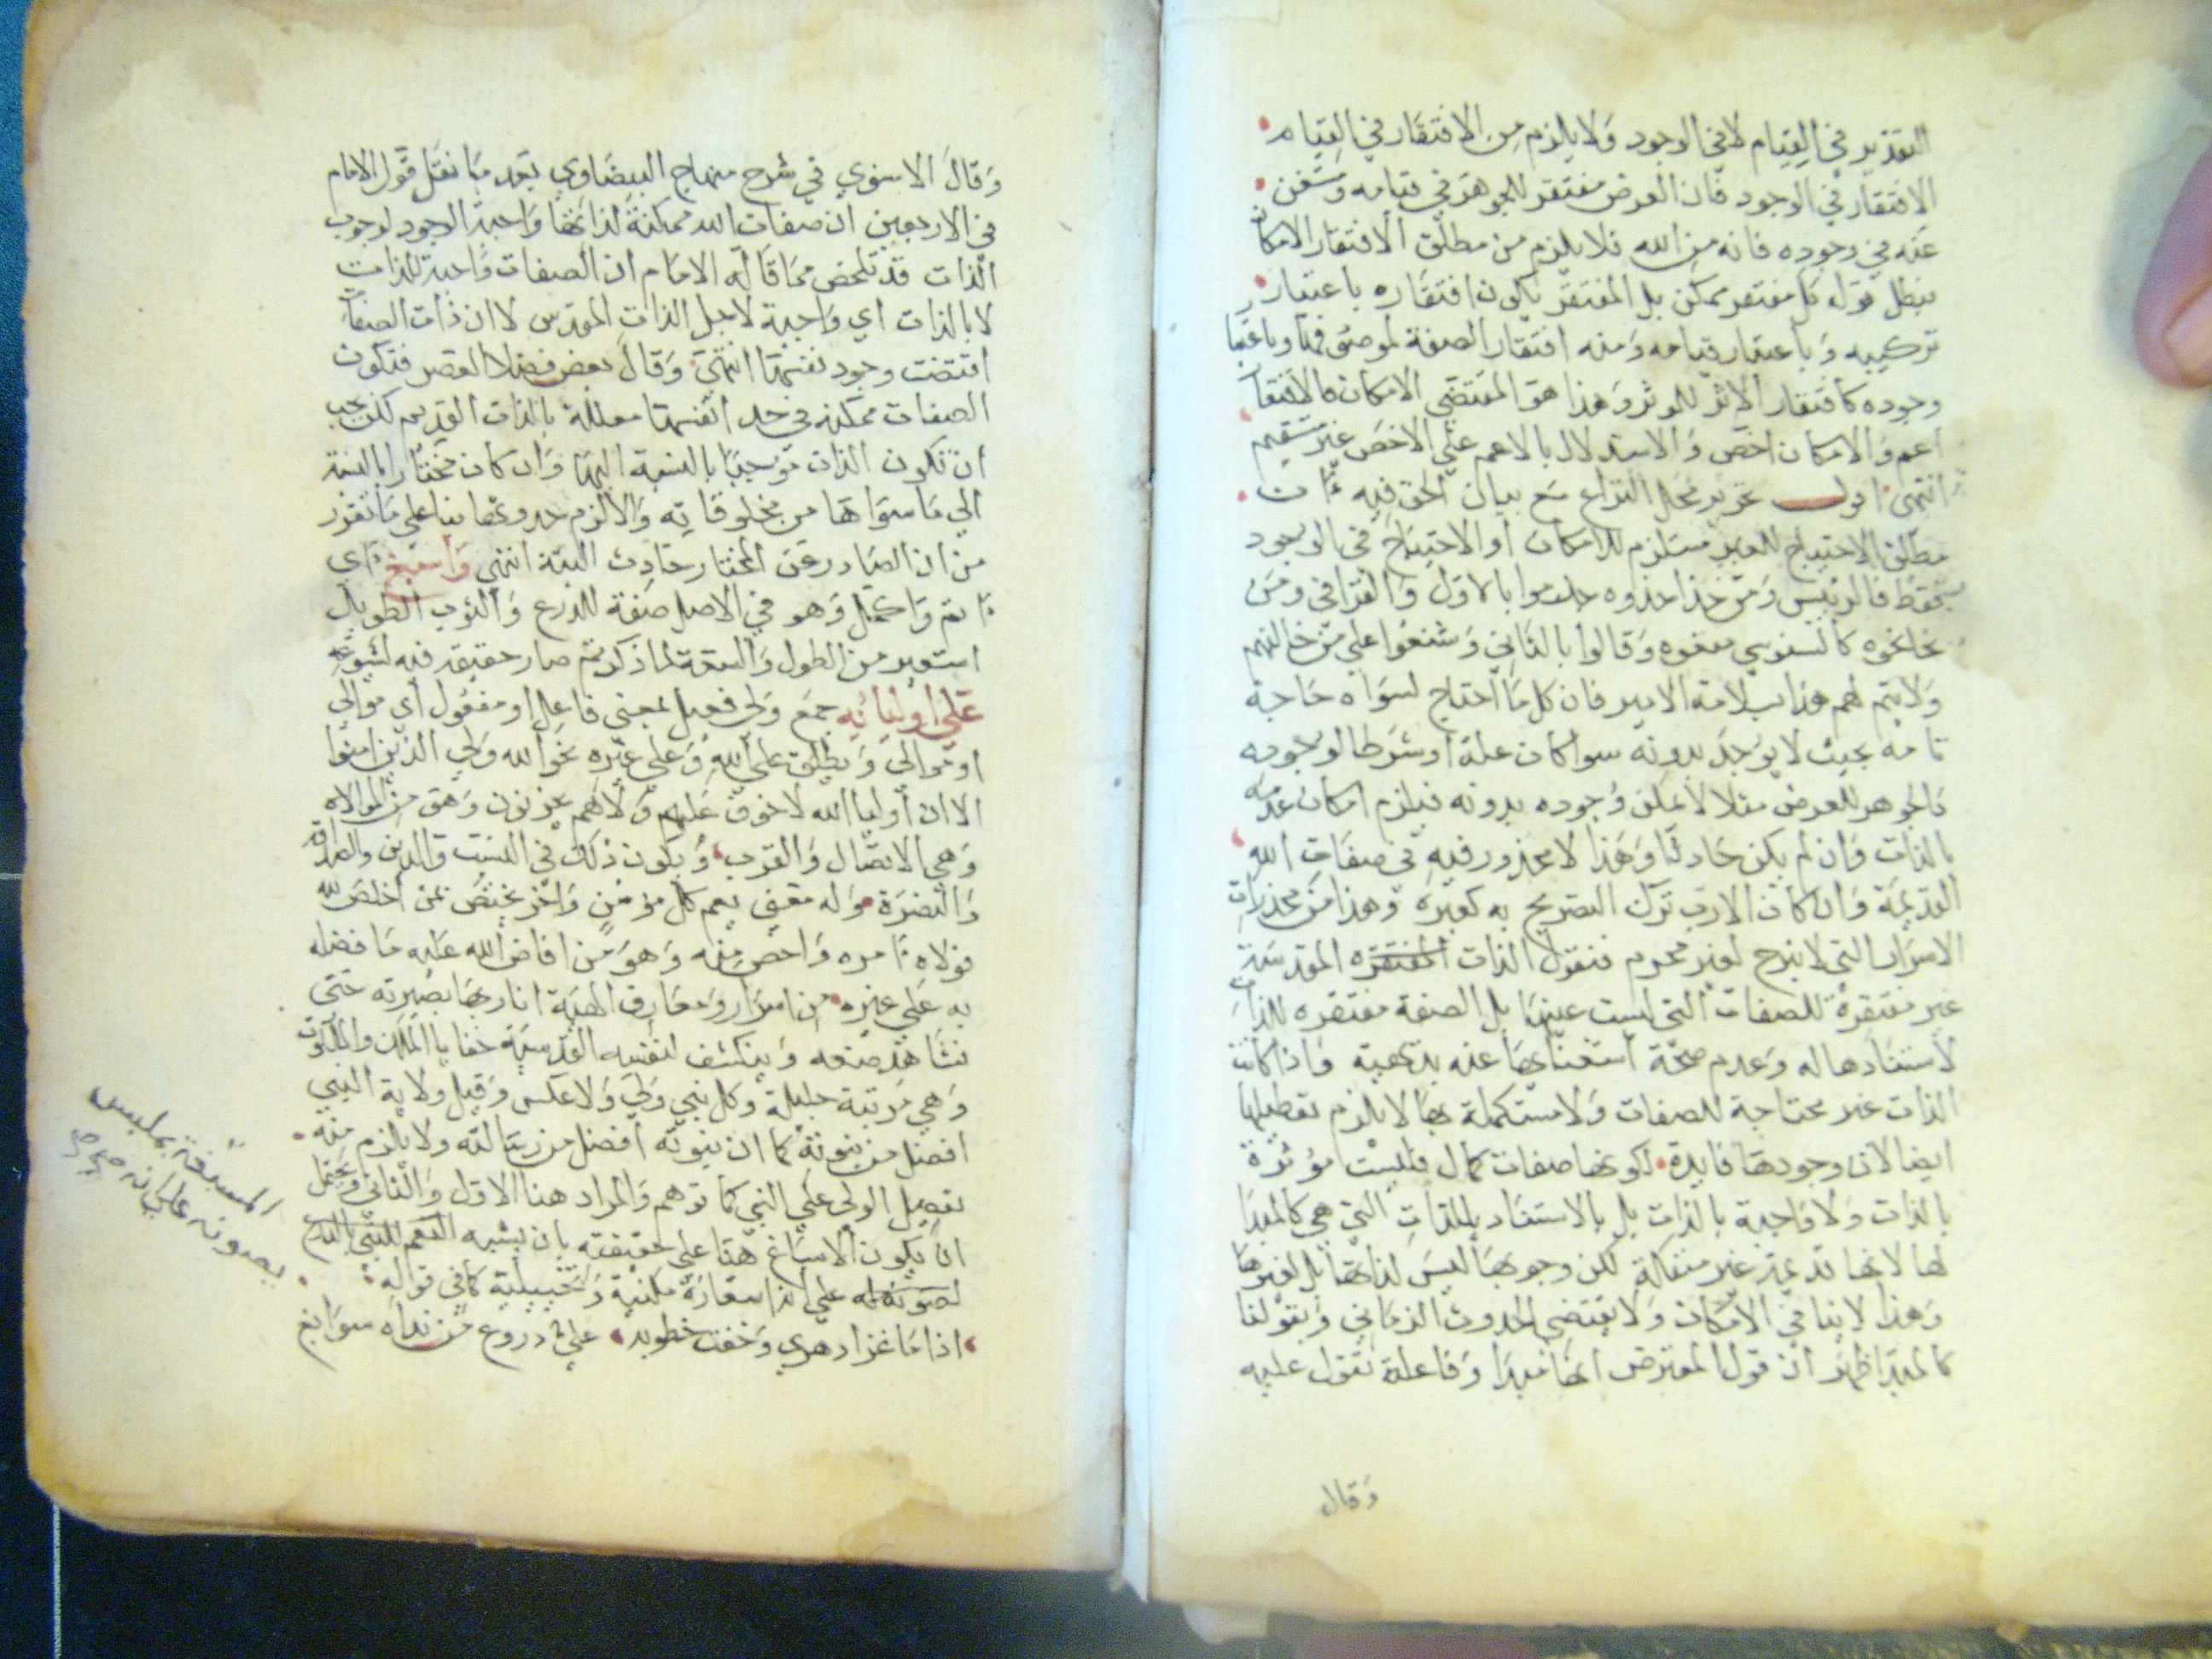 التقدير في القيام لا في الوجود ولا يلزم من الافتقار في القيام
الافتقار في الوجود فان العرض مفتقر للجوهر في قيامه ومستغن
عنه في وجوده فانه من الله فلا يلزم من مطلق الافتقار الامكان
فبطل قوله كل مفتقر ممكن بل المفتقر يكون افتقاره باعتبار
تركيبه وباعتبار قيامه ومنه افتقار الصفة لموصوفها وباعتبا
وجوده كافتقار الاثر للموثر وهذا هو المقتضي الامكان فالافتقا
اعم والامكان اخص والاستدلال بالاعم علي الاخص غير مستقيم
انتهي اقول تحرير محل النزاع مع بيان الحق فيه ان
مطلق الاحتياج للغير مستلزم للامكان او الاحتياج في الوجود
فقط فالرئيس ومن حذا حذوه جزموا بالاول والقرافي ومن
نحا نحوه كالسنوسي منعوه وقالوا بالثاني وشنعوا علي من خالفهم
ولا يتم لهم هذا بسلامة الامير فان كل ما احتاج لسواه حاجة
تامه بحيث لا يوجد بدونه سوا كان علة او شرطا لوجوده
كالجوهر للعرض مثلا لا يمكن وجوده بدونه فيلزم امكان عدمه
بالذات وان لم يكن حادثا وهذا لا محذور فيه في صفات الله
القديمة وان كان الادب ترك التصريح به كغيره وهذا من مخدرات
الاسرار التي لا تبرح لغير محرم فنقول الذات المفتقره المقدسة
غير مفتقرة للصفات التي ليست عينها بل الصفة مفتقره للذات
لاستنادها له وعدم صحة استغنائها عنه بديهية واذا كانت
الذات غير محتاجة للصفات ولا مستكملة بها لا يلزم تعطيلها
ايضا لان وجودها فايدة لكونها صفات كمال فليست موثرة
بالذات ولا واجبة بالذات بل بالاستناد للذات التي هي كالمبدا
لها لانها قديمة غير منفكة لكن وجوبها ليس لذاتها بل لغيرها
وهذا لا ينافي الامكان ولا يقتضي الحدوث الزماني وبقولنا
كالمبدا ظهر ان قول المعترض انها مبدا وفاعلة تقول عليه
وقال
وقال الاسنوي في شرح منهاج البيضاوي بعد ما نقل قول الامام
في الاربعين ان صفات الله ممكنة لذاتها واجبة الوجود لوجوب
الذات قد تلخص مما قاله الامام ان الصفات واجبة للذات
لا بالذات اي واجبة لاجل الذات المقدس لا ان ذات الصفات
اقتضت وجود نفسها انتهي وقال بعض فضلا العصر فتكون
الصفات ممكنة في حد انفسها معللة بالذات القديم لكن يجب
ان تكون الذات موجبا بالنسبة اليها وان كان مختارا بالنسبة
الي ما سواها من مخلوقاته والا لزم حدوثها بنا علي ما تقرر
من ان الصادر عن المختار حادث البتة انتهي واسبغ اي
اتم واكمل وهو في الاصل صفة للدرع والثوب الطويل
استعير من الطول والسعة لما ذكر ثم صار حقيقة فيه لشيوعه
علي اوليائه جمع ولي فعيل بمعني فاعل او مفعول اي موالي
او موالي ويطلق علي الله وعلي غيره نحو الله ولي الذين امنوا
الا ان اوليا الله لا خوف عليهم ولا هم يحزنون وهو من الموالاه
وهي الاتصال والقرب ويكون ذلك في النسب والدين والصداقة
والنصرة وله معني يعم كل مومن واخر يختص بمن اخلص لله
فولاه امره واخص منه وهو من افاض الله عليه ما فضله
به علي غيره من اسرار ومعارف الهية انار بها بصيرته حتي
شاهد صنعه وينكشف لنفسه القدسية خفايا الملك والملكوت
وهي مرتبة جليلة وكل نبي ولي ولا عكس وقيل ولاية النبي
افضل من نبوته كما ان نبوته افضل من رسالته ولا يلزم منه
تفضيل الولي علي النبي كما توهم والمراد هنا الاول والثاني ويحتمل
ان يكون الاسباغ هنا علي حقيقته بان يشبه النعم للنبي بالدرع
لصونه له علي انه استعارة مكنية وتخييلية كما في قوله
اذا ما غزا دهري وخفت خطوبه علي دروع من نداه سوابغ
المسبغة بملبس
يصونه علي انه